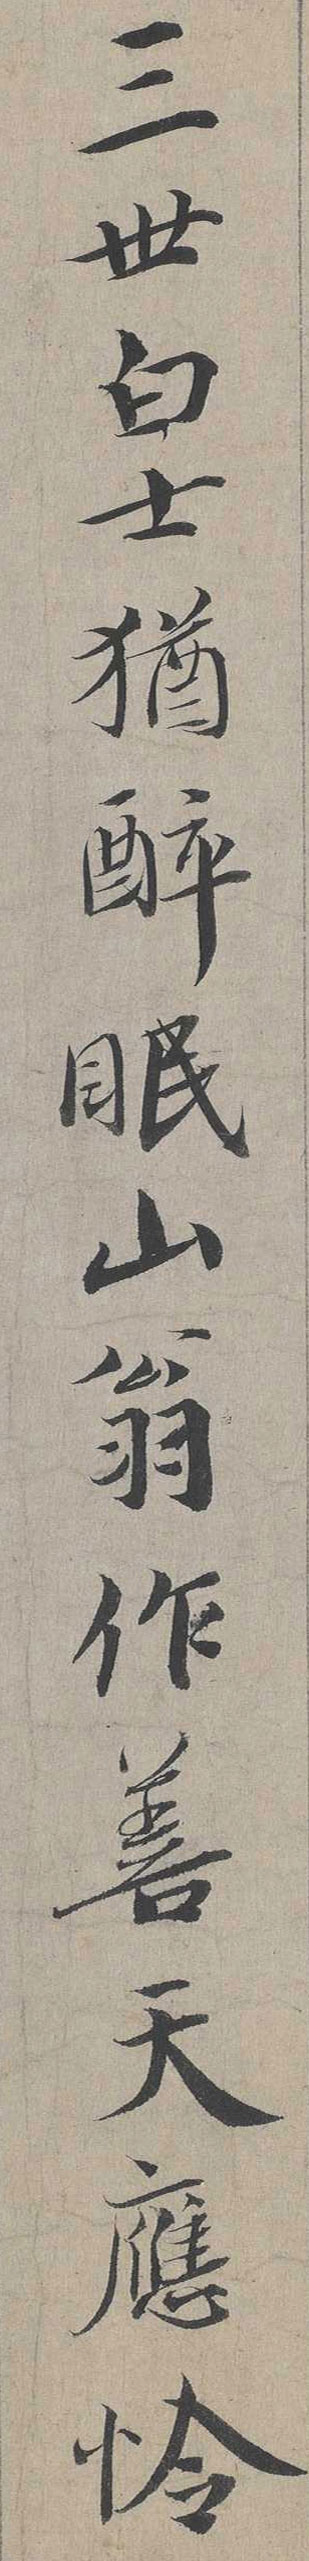 三世白士猶醉眠山翁作善天應怜